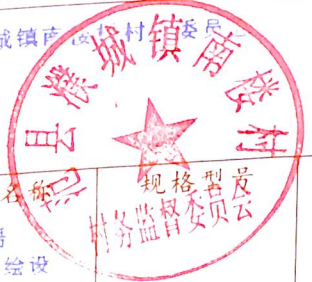 城镇南 村 委员
范县濮城镇南楼村
村务监督委员会
名称 规格型号
绘设